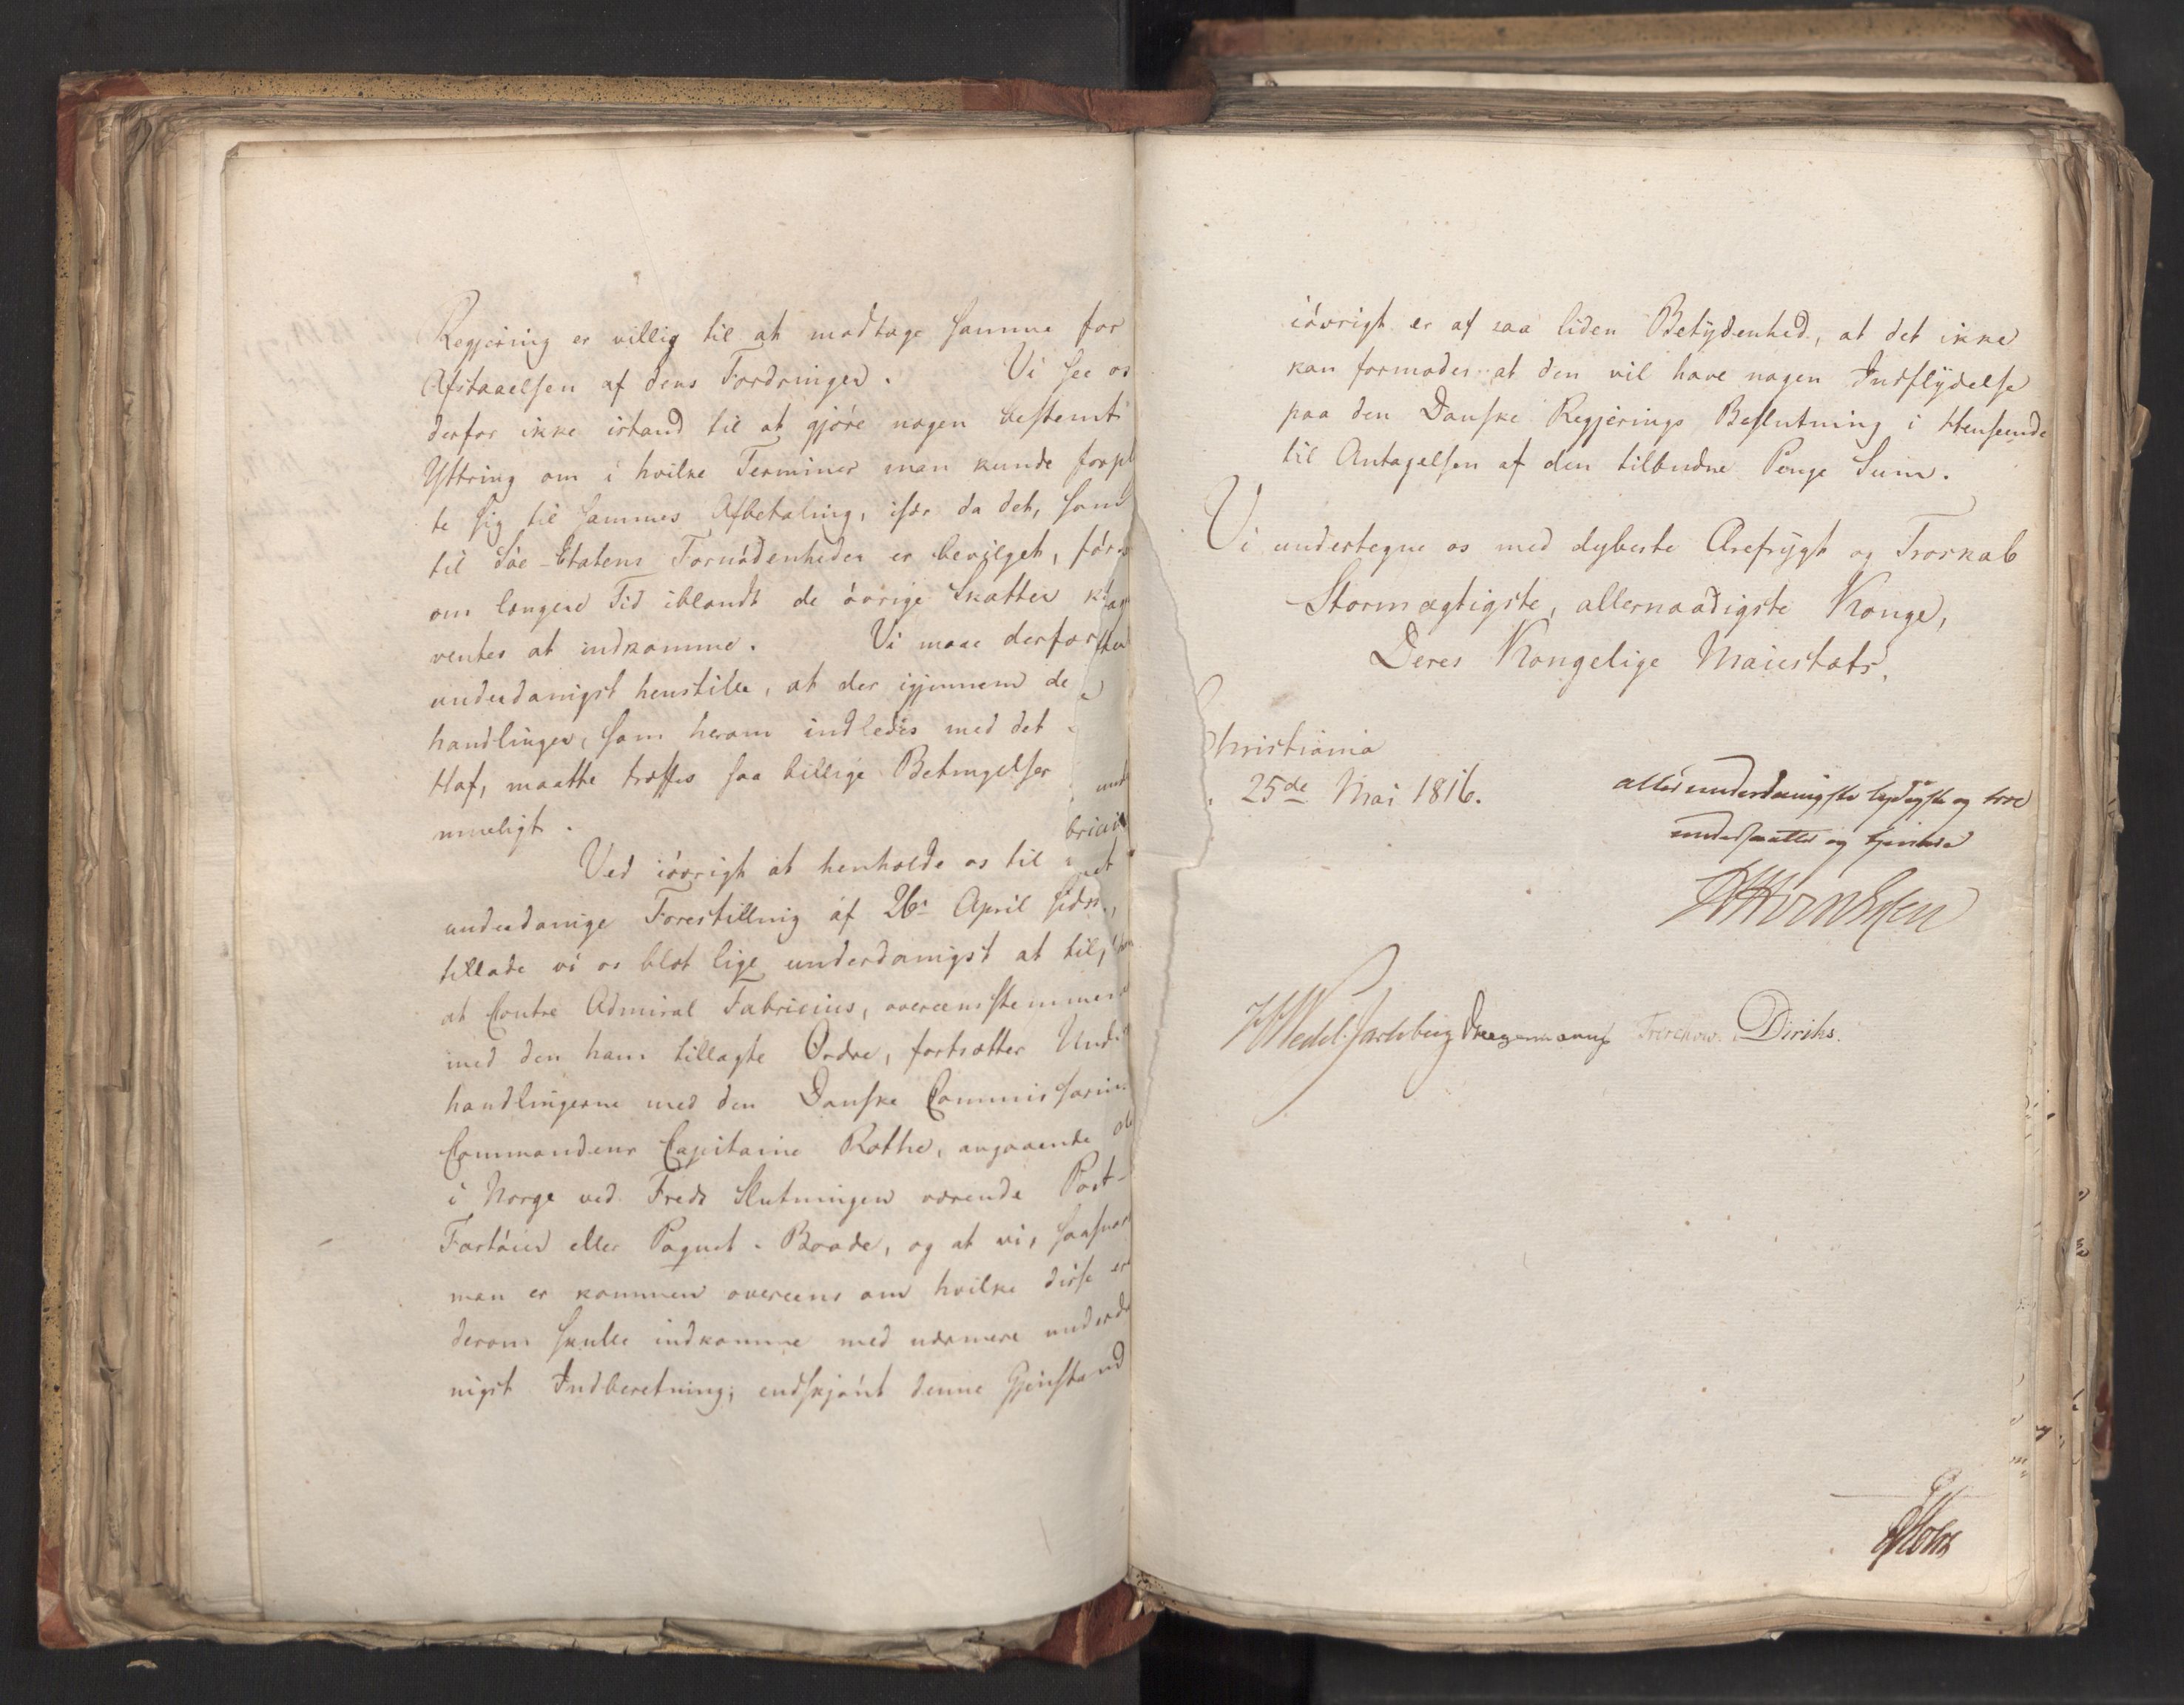 Regjering er villig til at modtage samme for
Afstaaelsen af dens Fordringer. Vi see os
derfor ikke istand til at gjöre nogen bestemt
Yttring om i hvilke Terminer man kunde forpl
te sig til sammes Afbetaling, især da det, som
til Söe-Etatens Fornödenheder er bevilget, först
om længere Tid iblandt de övrige Skatter k
ventes at indkomme. Vi maae derfor
underdanigst henstille, at der igjennem de
handlinger, som herom indledes med det
Hof, maatte træffes saa billige Betingelser
mueligt.
Ved iövrigt at henholde os til
underdanige Forestilling af 26de April sidstl.,
tillade vi os blot lige underdanigst at til
at Contre Admiral Fabricius, overeensstemmende
med den ham tillagte Ordre, fortsætter Und
handlingerne med den Danske Commissarius
Commandeur Capitaine Rothe, angaaende de
i Norge ved Freds Slutningen værende Post-
Fartöier eller Paquet-Baade, og at vi, saasnart
man er kommen overeens om hvilke disse ere
derom skulle indkomme med nærmere underda
nigst Indberetning; endskjönt denne Gjenstand
iövrigt er af saa liden Betydenhed, at det ikke
kan formodes at den vil have nogen Indflydelse
paa den Danske Regjerings Beslutning i Henseende
til Antagelsen af den tilbudne Penge Sum.
Vi undertegne os med dybeste Ærefrygt og Troskab
Stormægtigste, allernaadigste Konge,
Deres Kongelige Maiestæts,
Christiania
25de Mai 1816.
allerunderdanigste lydigste og troe
undersaatter og tjenere
Wedel Jarlsberg Treschow. Diriks.
Holst